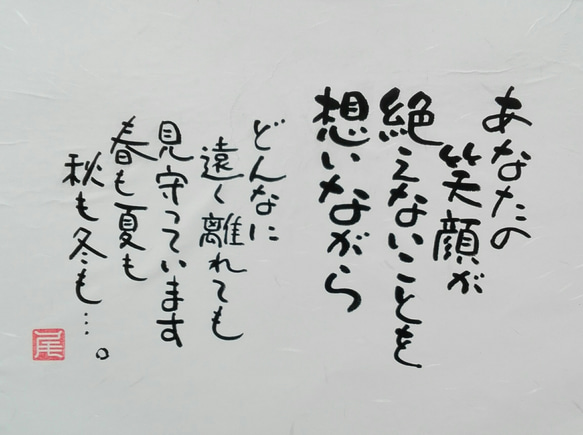 あなたの
笑顔が
絶えないことを
想いながら
どんなに
遠く離れても
見守っています
春も夏も
秋も冬も…。
尾